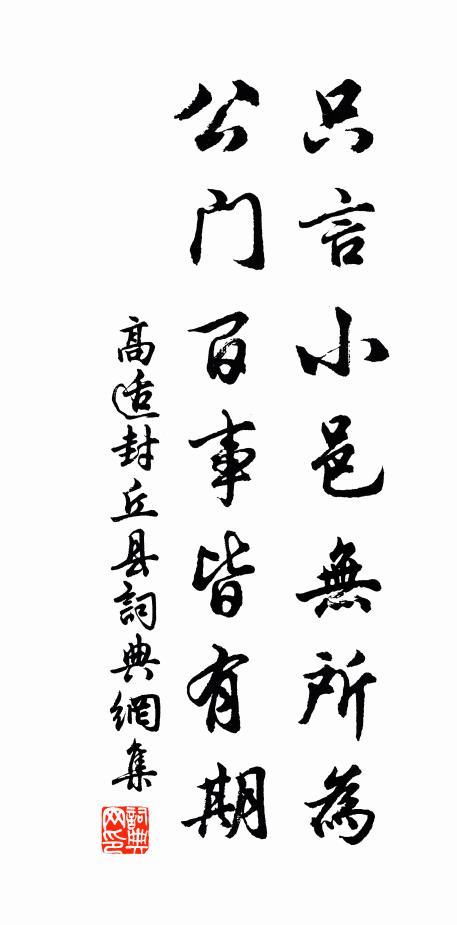 只言小邑無所為
公门百事皆有期
高适封丘县詞典網集
詞典网印